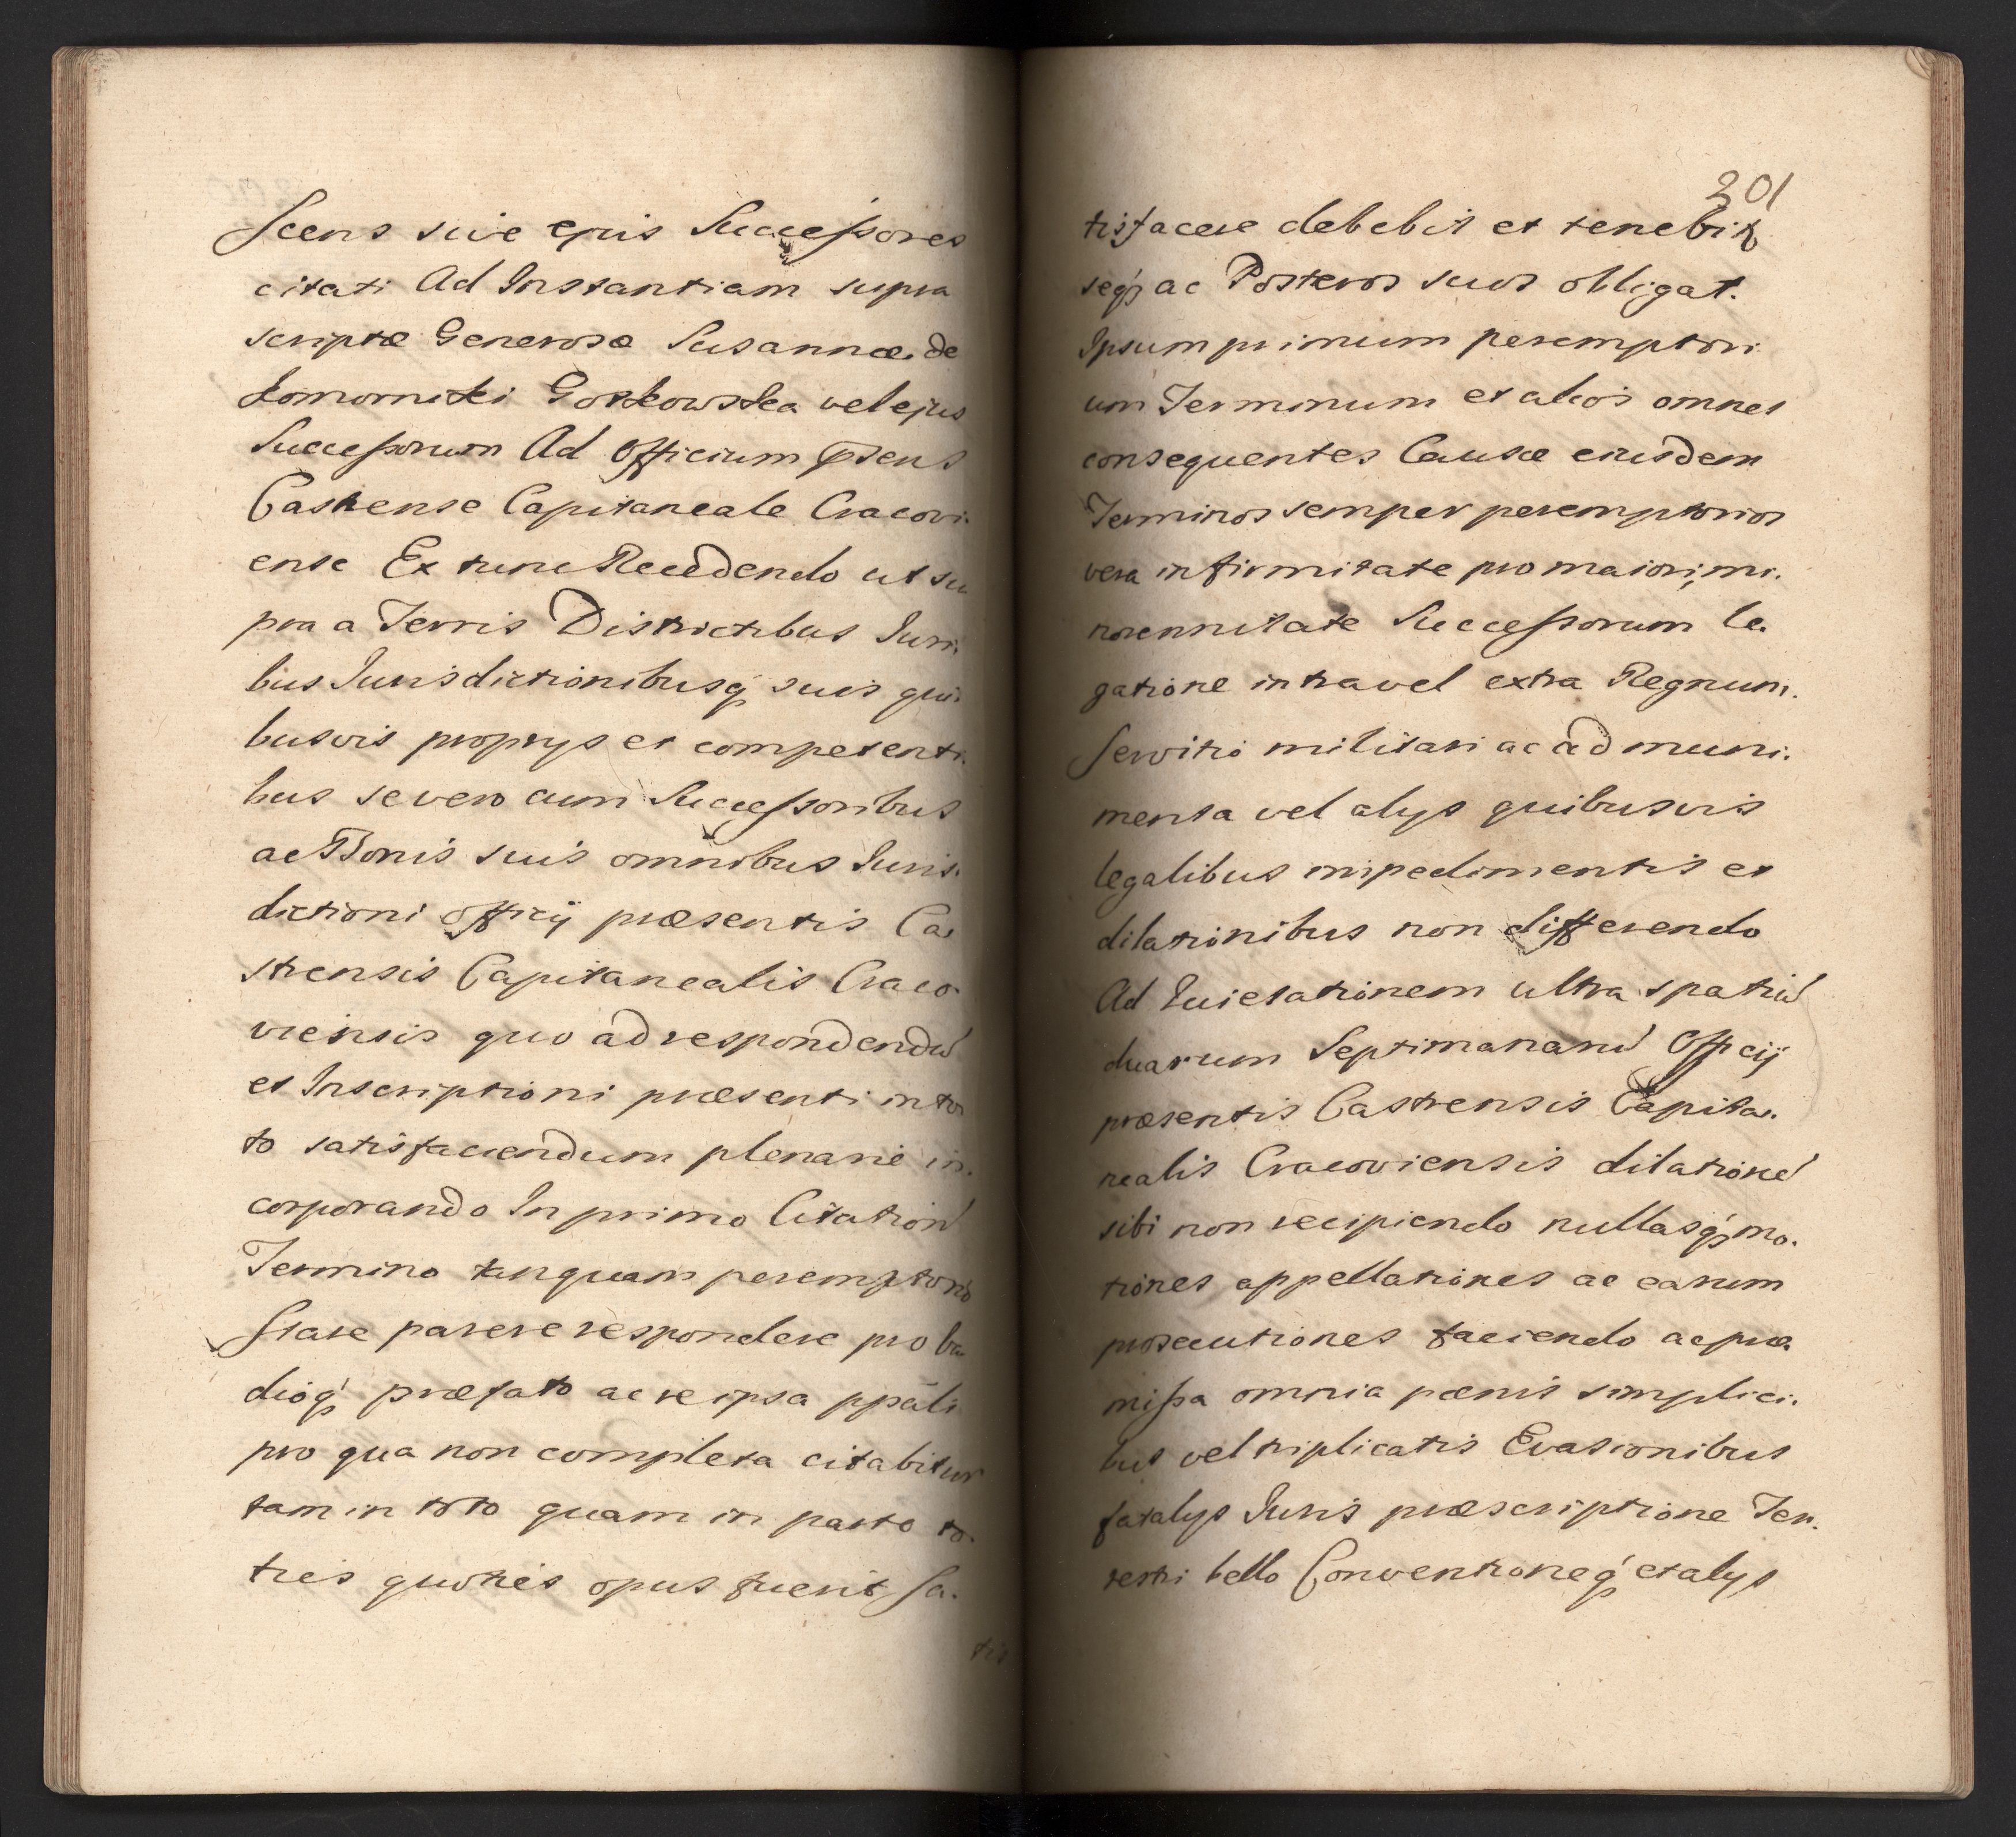 Scens sive ejus Successores
citati Ad Instantiam supra
scriptæ Generosæ Susannæ de
Komorniki Gorkowska vel ejus
Successorum Ad Officium pſens
Castrense Capitaneale Cracovi.
ense Ex tunc Recedendo ut su
pra a Terris Districtibus Juri.
bus Jurisdictionibusq suis qui.
busvis proprys et competenti.
bus se vero cum Successoribus
ac Bonis suis omnibus Juris.
dictioni officij præsentis Ca
strensis Capitanealis Craco
viensis quo ad respondendū
et Inscriptioni præsenti in to
to satisfaciendum plenarie in.
corporando In primo Citation
Termino tanquam peremptorio
Stare parere respondere pro va
dioq præfato ac re ipsa ppāli
pro qua non completa citabitur
tam in toto quam in parte to.
ties quoties opus fuerit sa.
tis
201
tisfacere debebit et tenebit
seq ac Posteros suos obligat.
Ipsum primum peremptori
um Terminum et alios omnes
consequentes Causæ eiusdem
Terminos semper peremptorios
vera infirmitate pro maiori, mi.
norennitate Successorum le.
gatione intra vel extra Regnum.
Servitio militari ac ad muni.
menta vel alys quibusvis
legalibus impedimentis et
dilationibus non differendo
Ad Quietationem ultra spatiū
duarum Septimanarū Officij
præsentis Castrensis Capita.
nealis Cracoviensis dilationē
sibi non recipiendo nullasq mo.
tiones appellationes ac earum
prosecutiones faciendo ac præ
missa omnia pænis simplici.
bus vel triplicatis Evasionibus
fatalys Juris præscriptione Ter.
restri bello Conventioneq et alys